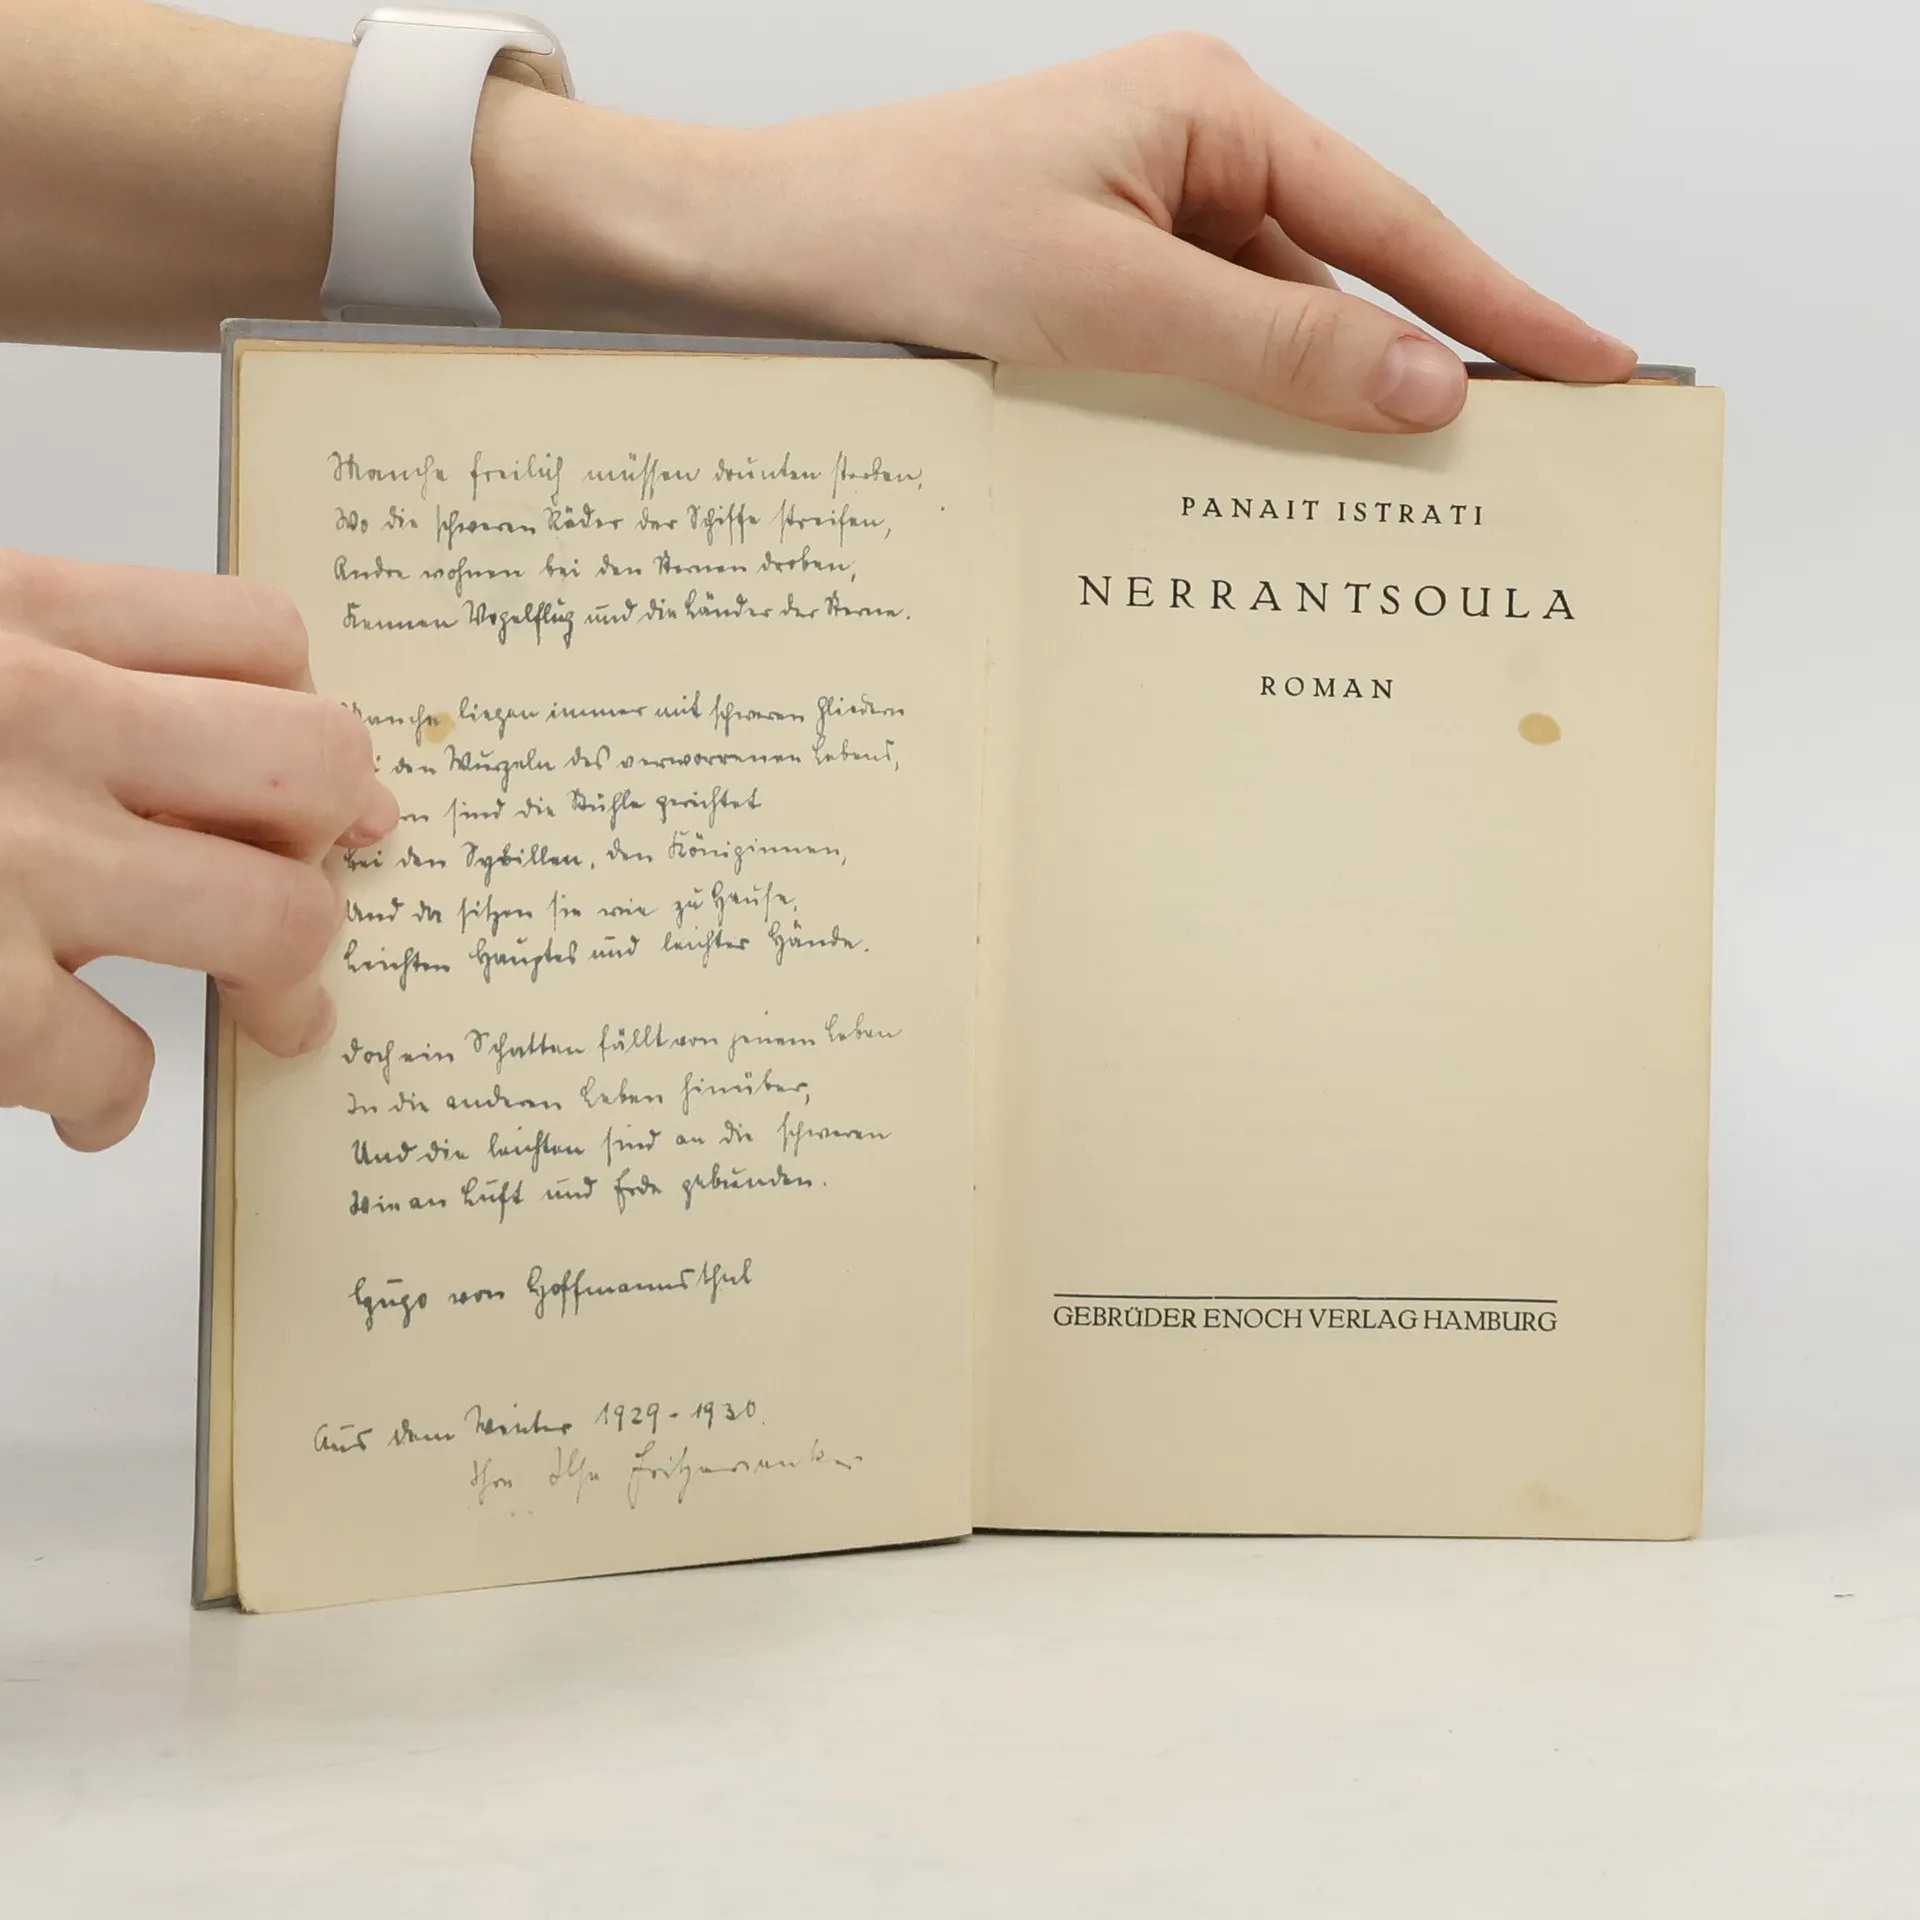 Manche freilich müssen drunten sterben,
Wo die schweren Räder der Schiffe streifen,
Andre wohnen bei den Sternen droben,
Kennen Vogelflug und die Länder der Sterne.
Manche liegen immer mit schweren Gliedern
den Wurzeln des verworrenen Lebens,
sind die Stühle gerichtet
Bei den Sybillen, den Königinnen,
Und da sitzen sie wie zu Hause,
Leichten Hauptes und leichter Hände.
Doch ein Schatten fällt von jenem Leben
In die anderen Leben hinüber,
Und die leichten sind an die schweren
Wie an Luft und Erde gebunden.
Hugo von Hoffmannsthal
Aus dem Winter 1929-1930.
Ihre Ilse
PANAIT ISTRATI
NERRANTSOULA
ROMAN
GEBRÜDER ENOCH VERLAG HAMBURG